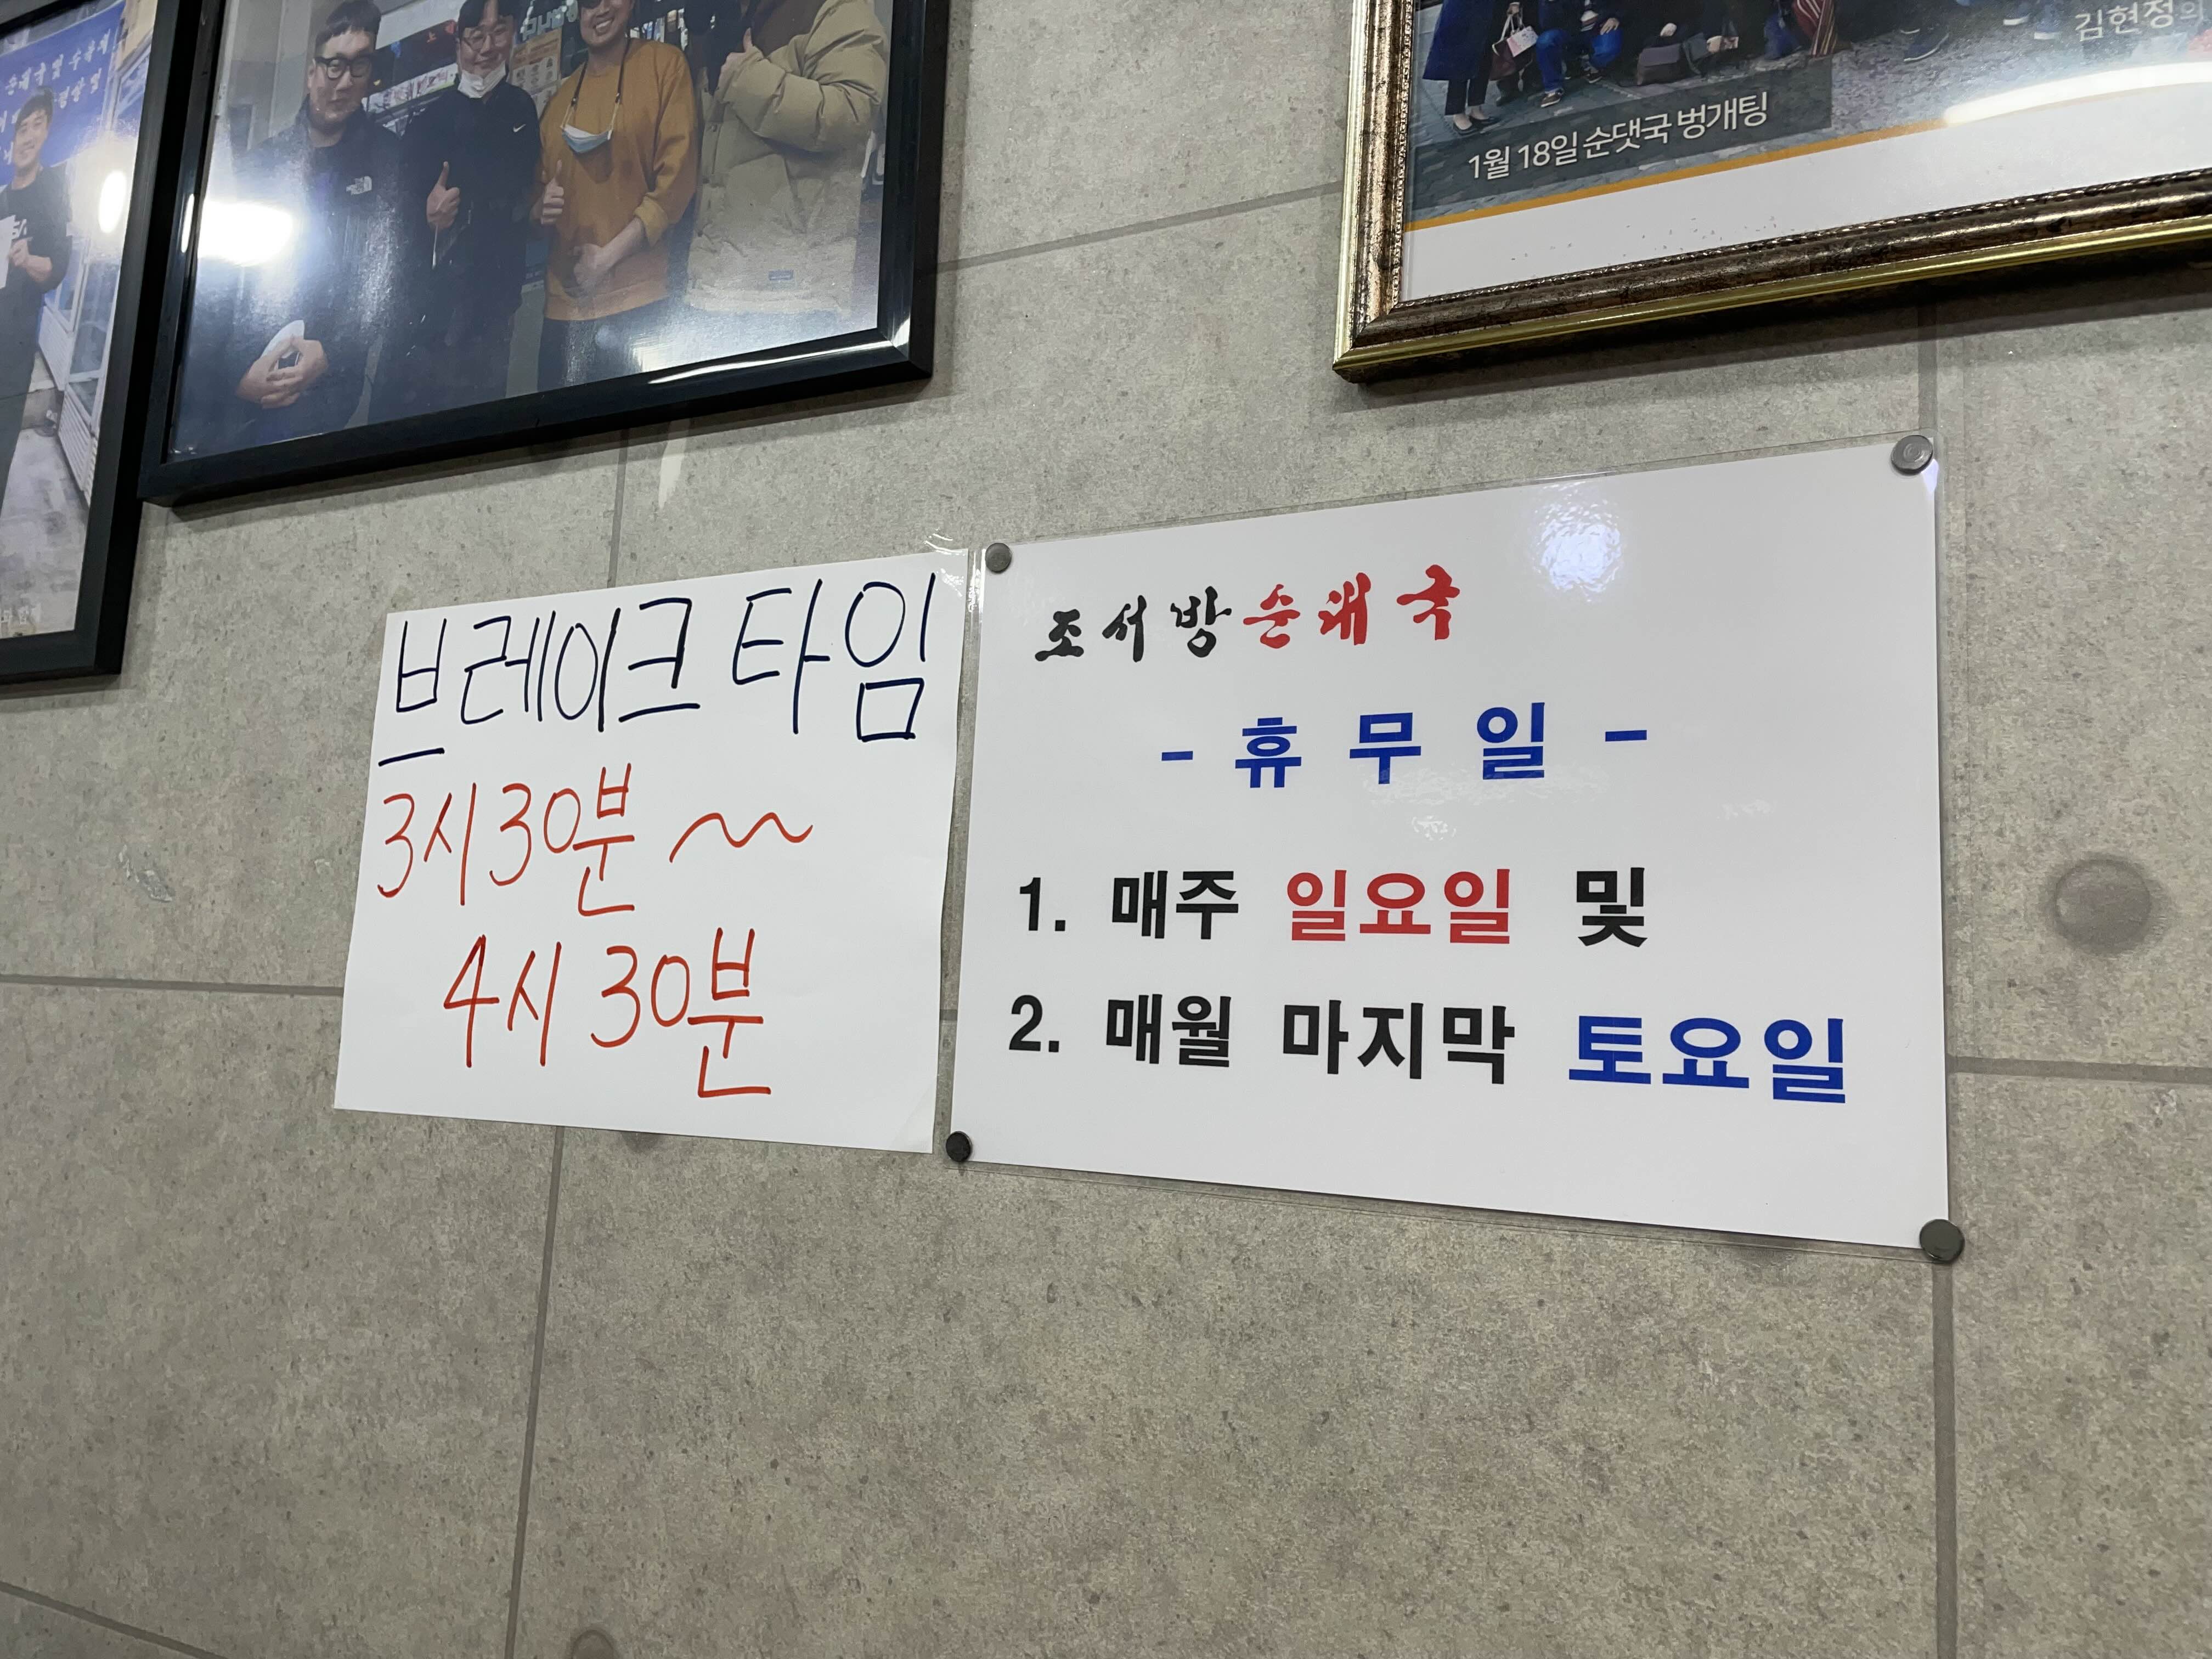 1월 18일 순댓국 벙개팅
김현정의
브레이크 타임
3시 30분 ~
4시 30분
조서방순대국
- 휴 무 일 -
1. 매주 일요일 및
2. 매월 마지막 토요일